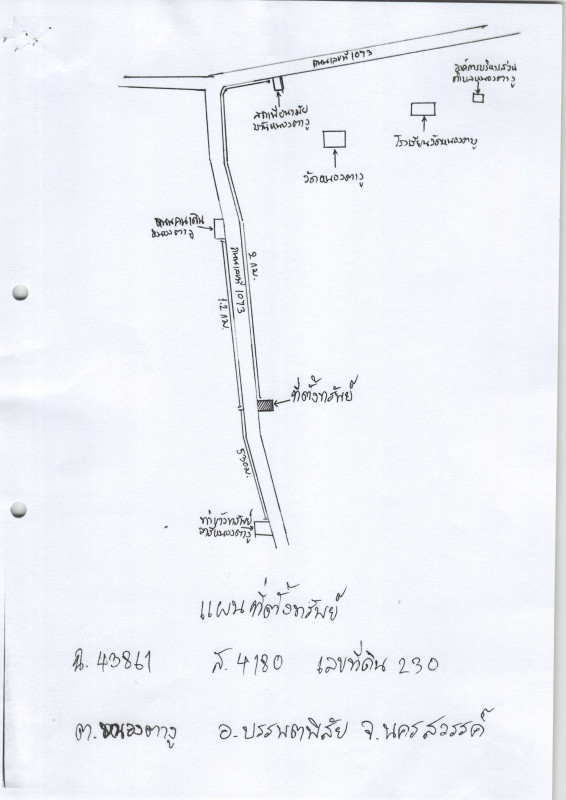 ถนนเลขที่ 1073
องค์การบริหารส่วน
ตำบลหนองตางู
สถานีอนามัย
หนองตางู
โรงเรียนวัดหนองตางู
วัดหนองตางู
ถนนคนเดิน
หนองตางู
ถนนเลขที่ 1073
2 กม.
1.2 กม.
ที่ตั้งทรัพย์
530 ม.
หนองตางู
แผนที่ตั้งทรัพย์
ฉ. 43861 ส. 4180 เลขที่ดิน 230
ต.หนองตางู อ.บรรพตพิสัย จ.นครสวรรค์